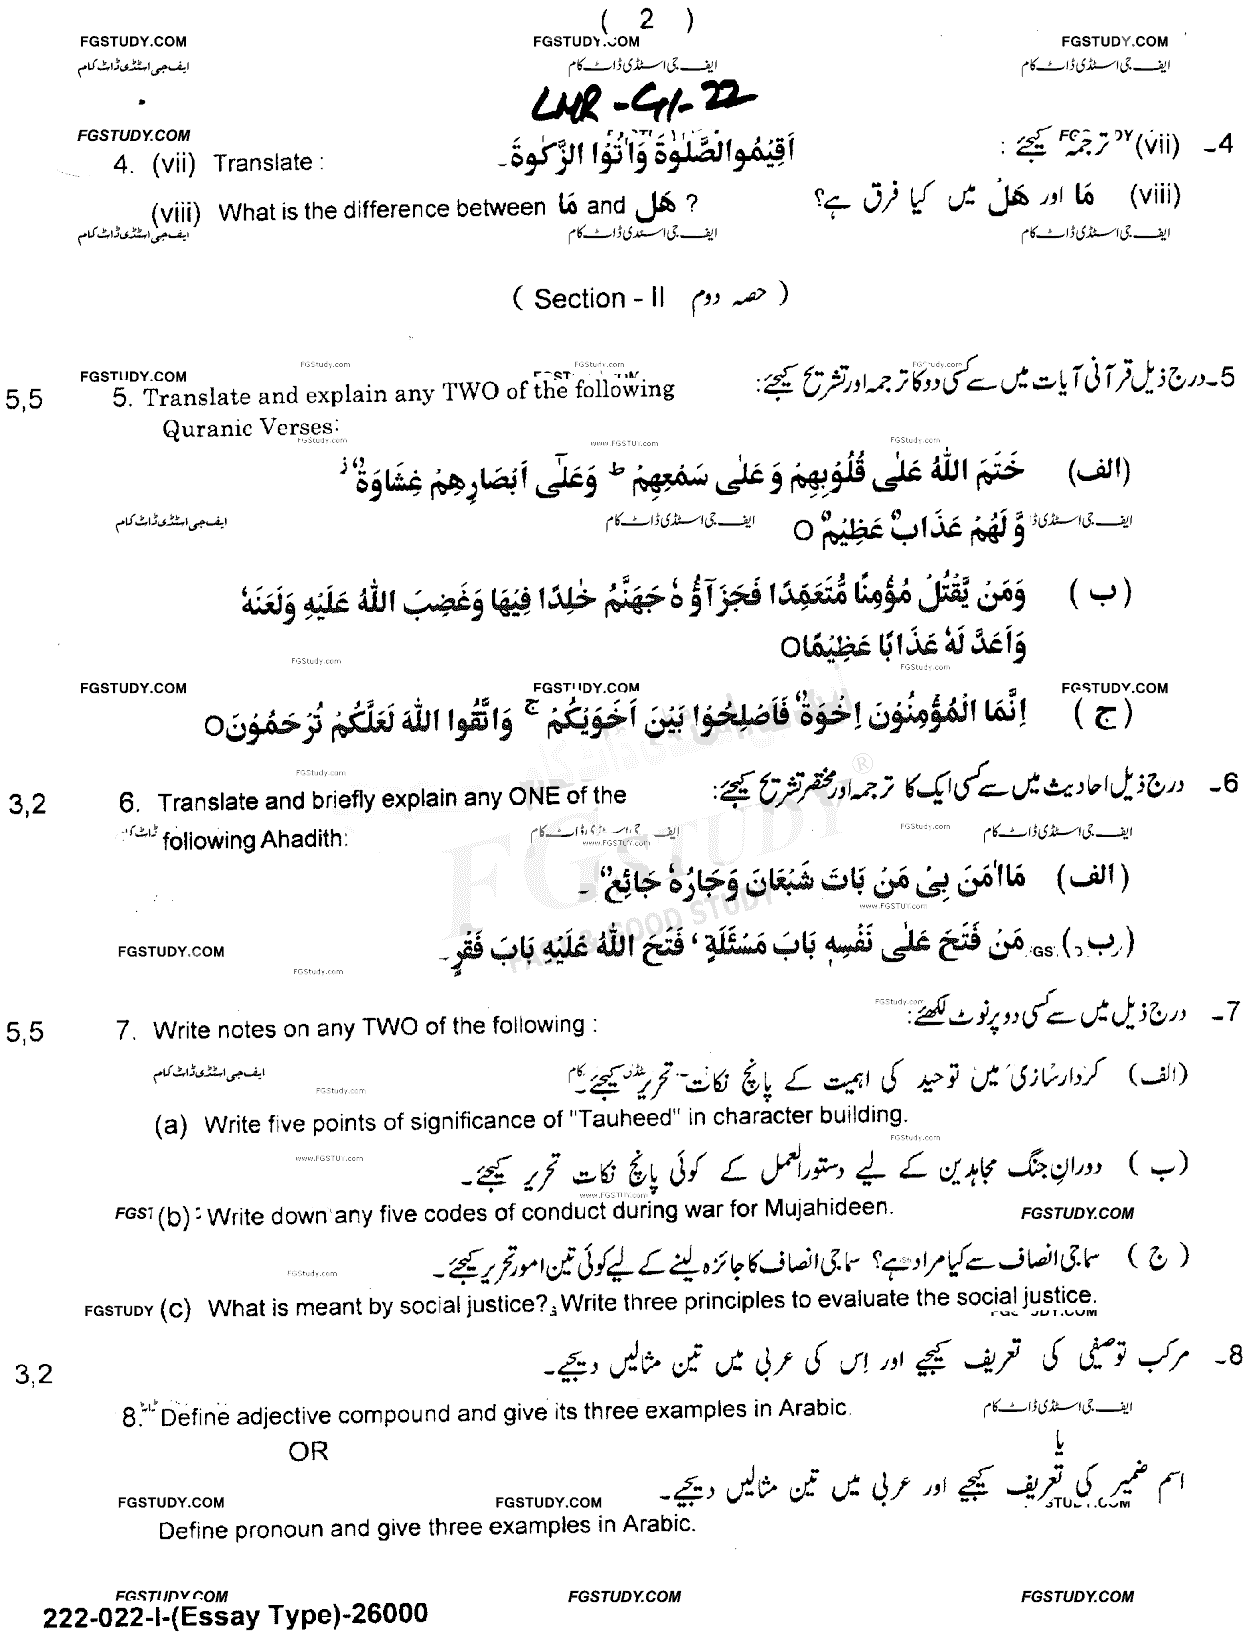 ( 2 )
FGSTUDY.COM FGSTUDY.COM FGSTUDY.COM
ایف جی اسٹڈی ڈاٹ کام ایف جی اسٹڈی ڈاٹ کام ایف جی اسٹڈی ڈاٹ کام
LHR-G1-22
FGSTUDY.COM
4. (vii) Translate : اَقِيْمُوا الصَّلٰوةَ وَاٰتُوا الزَّكٰوةَ۔ 4۔ (vii) ترجمہ کیجئے :
(viii) What is the difference between مَا and هَلْ ? (viii) مَا اور هَلْ میں کیا فرق ہے؟
ایف جی اسٹڈی ڈاٹ کام ایف جی اسٹڈی ڈاٹ کام ایف جی اسٹڈی ڈاٹ کام
( Section - II حصہ دوم )
FGStudy.com FGStudy.com FGStudy.com
FGSTUDY.COM
5,5 5. Translate and explain any TWO of the following 5۔ درج ذیل قرآنی آیات میں سے کسی دو کا ترجمہ اور تشریح کیجئے:
Quranic Verses:
FGStudy.com www.FGSTUY.com FGStudy.com
(الف) خَتَمَ اللّٰهُ عَلٰى قُلُوْبِهِمْ وَ عَلٰى سَمْعِهِمْ ؕ وَعَلٰٓى اَبْصَارِهِمْ غِشَاوَةٌ ۫
وَّ لَهُمْ عَذَابٌ عَظِيْمٌ ○
ایف جی اسٹڈی ڈاٹ کام ایف جی اسٹڈی ڈاٹ کام ایف جی اسٹڈی ڈا
(ب) وَمَنْ يَّقْتُلْ مُؤْمِنًا مُّتَعَمِّدًا فَجَزَآؤُهٗ جَهَنَّمُ خٰلِدًا فِيْهَا وَغَضِبَ اللّٰهُ عَلَيْهِ وَلَعَنَهٗ
وَاَعَدَّ لَهٗ عَذَابًا عَظِيْمًا○
FGStudy.com FGStudy.com
FGSTUDY.COM FGSTUDY.COM FGSTUDY.COM
(ج) اِنَّمَا الْمُؤْمِنُوْنَ اِخْوَةٌ فَاَصْلِحُوْا بَيْنَ اَخَوَيْكُمْ ۚ وَاتَّقُوا اللّٰهَ لَعَلَّكُمْ تُرْحَمُوْنَ○
FGStudy.com
3,2 6. Translate and briefly explain any ONE of the 6۔ درج ذیل احادیث میں سے کسی ایک کا ترجمہ اور مختصر تشریح کیجئے:
following Ahadith:
www.FGSTUY.com FGStudy.com ایف جی اسٹڈی ڈاٹ کام
FGSTUDY ®
FAST & GOOD STUDY
(الف) مَا اٰمَنَ بِىْ مَنْ بَاتَ شَبْعَانَ وَجَارُهٗ جَائِعٌ ۔
www.FGSTUY.com
(ب) مَنْ فَتَحَ عَلٰى نَفْسِهٖ بَابَ مَسْئَلَةٍ ، فَتَحَ اللّٰهُ عَلَيْهِ بَابَ فَقْرٍ۔
FGSTUDY.COM
FGStudy.com
FGStudy.com
5,5 7. Write notes on any TWO of the following : 7۔ درج ذیل میں سے کسی دو پر نوٹ لکھئے:
(الف) کردار سازی میں توحید کی اہمیت کے پانچ نکات تحریر کیجئے۔
ایف جی اسٹڈی ڈاٹ کام
FGStudy.com
(a) Write five points of significance of "Tauheed" in character building.
FGStudy.com
www.FGSTUY.com
(ب) دوران جنگ مجاہدین کے لیے دستورالعمل کے کوئی پانچ نکات تحریر کیجئے۔
www.FGSTUY.com
(b) Write down any five codes of conduct during war for Mujahideen. FGSTUDY.COM
(ج) سماجی انصاف سے کیا مراد ہے؟ سماجی انصاف کا جائزہ لینے کے لیے کوئی تین امور تحریر کیجئے۔
FGStudy.com
FGSTUDY (c) What is meant by social justice? Write three principles to evaluate the social justice.
3,2 8۔ مرکب توصیفی کی تعریف کیجیے اور اس کی عربی میں تین مثالیں دیجیے۔
8. Define adjective compound and give its three examples in Arabic. ایف جی اسٹڈی ڈاٹ کام
OR یا
اسم ضمیر کی تعریف کیجیے اور عربی میں تین مثالیں دیجیے۔
FGSTUDY.COM FGSTUDY.COM
Define pronoun and give three examples in Arabic.
FGSTUDY.COM FGSTUDY.COM FGSTUDY.COM
222-022-I-(Essay Type)-26000